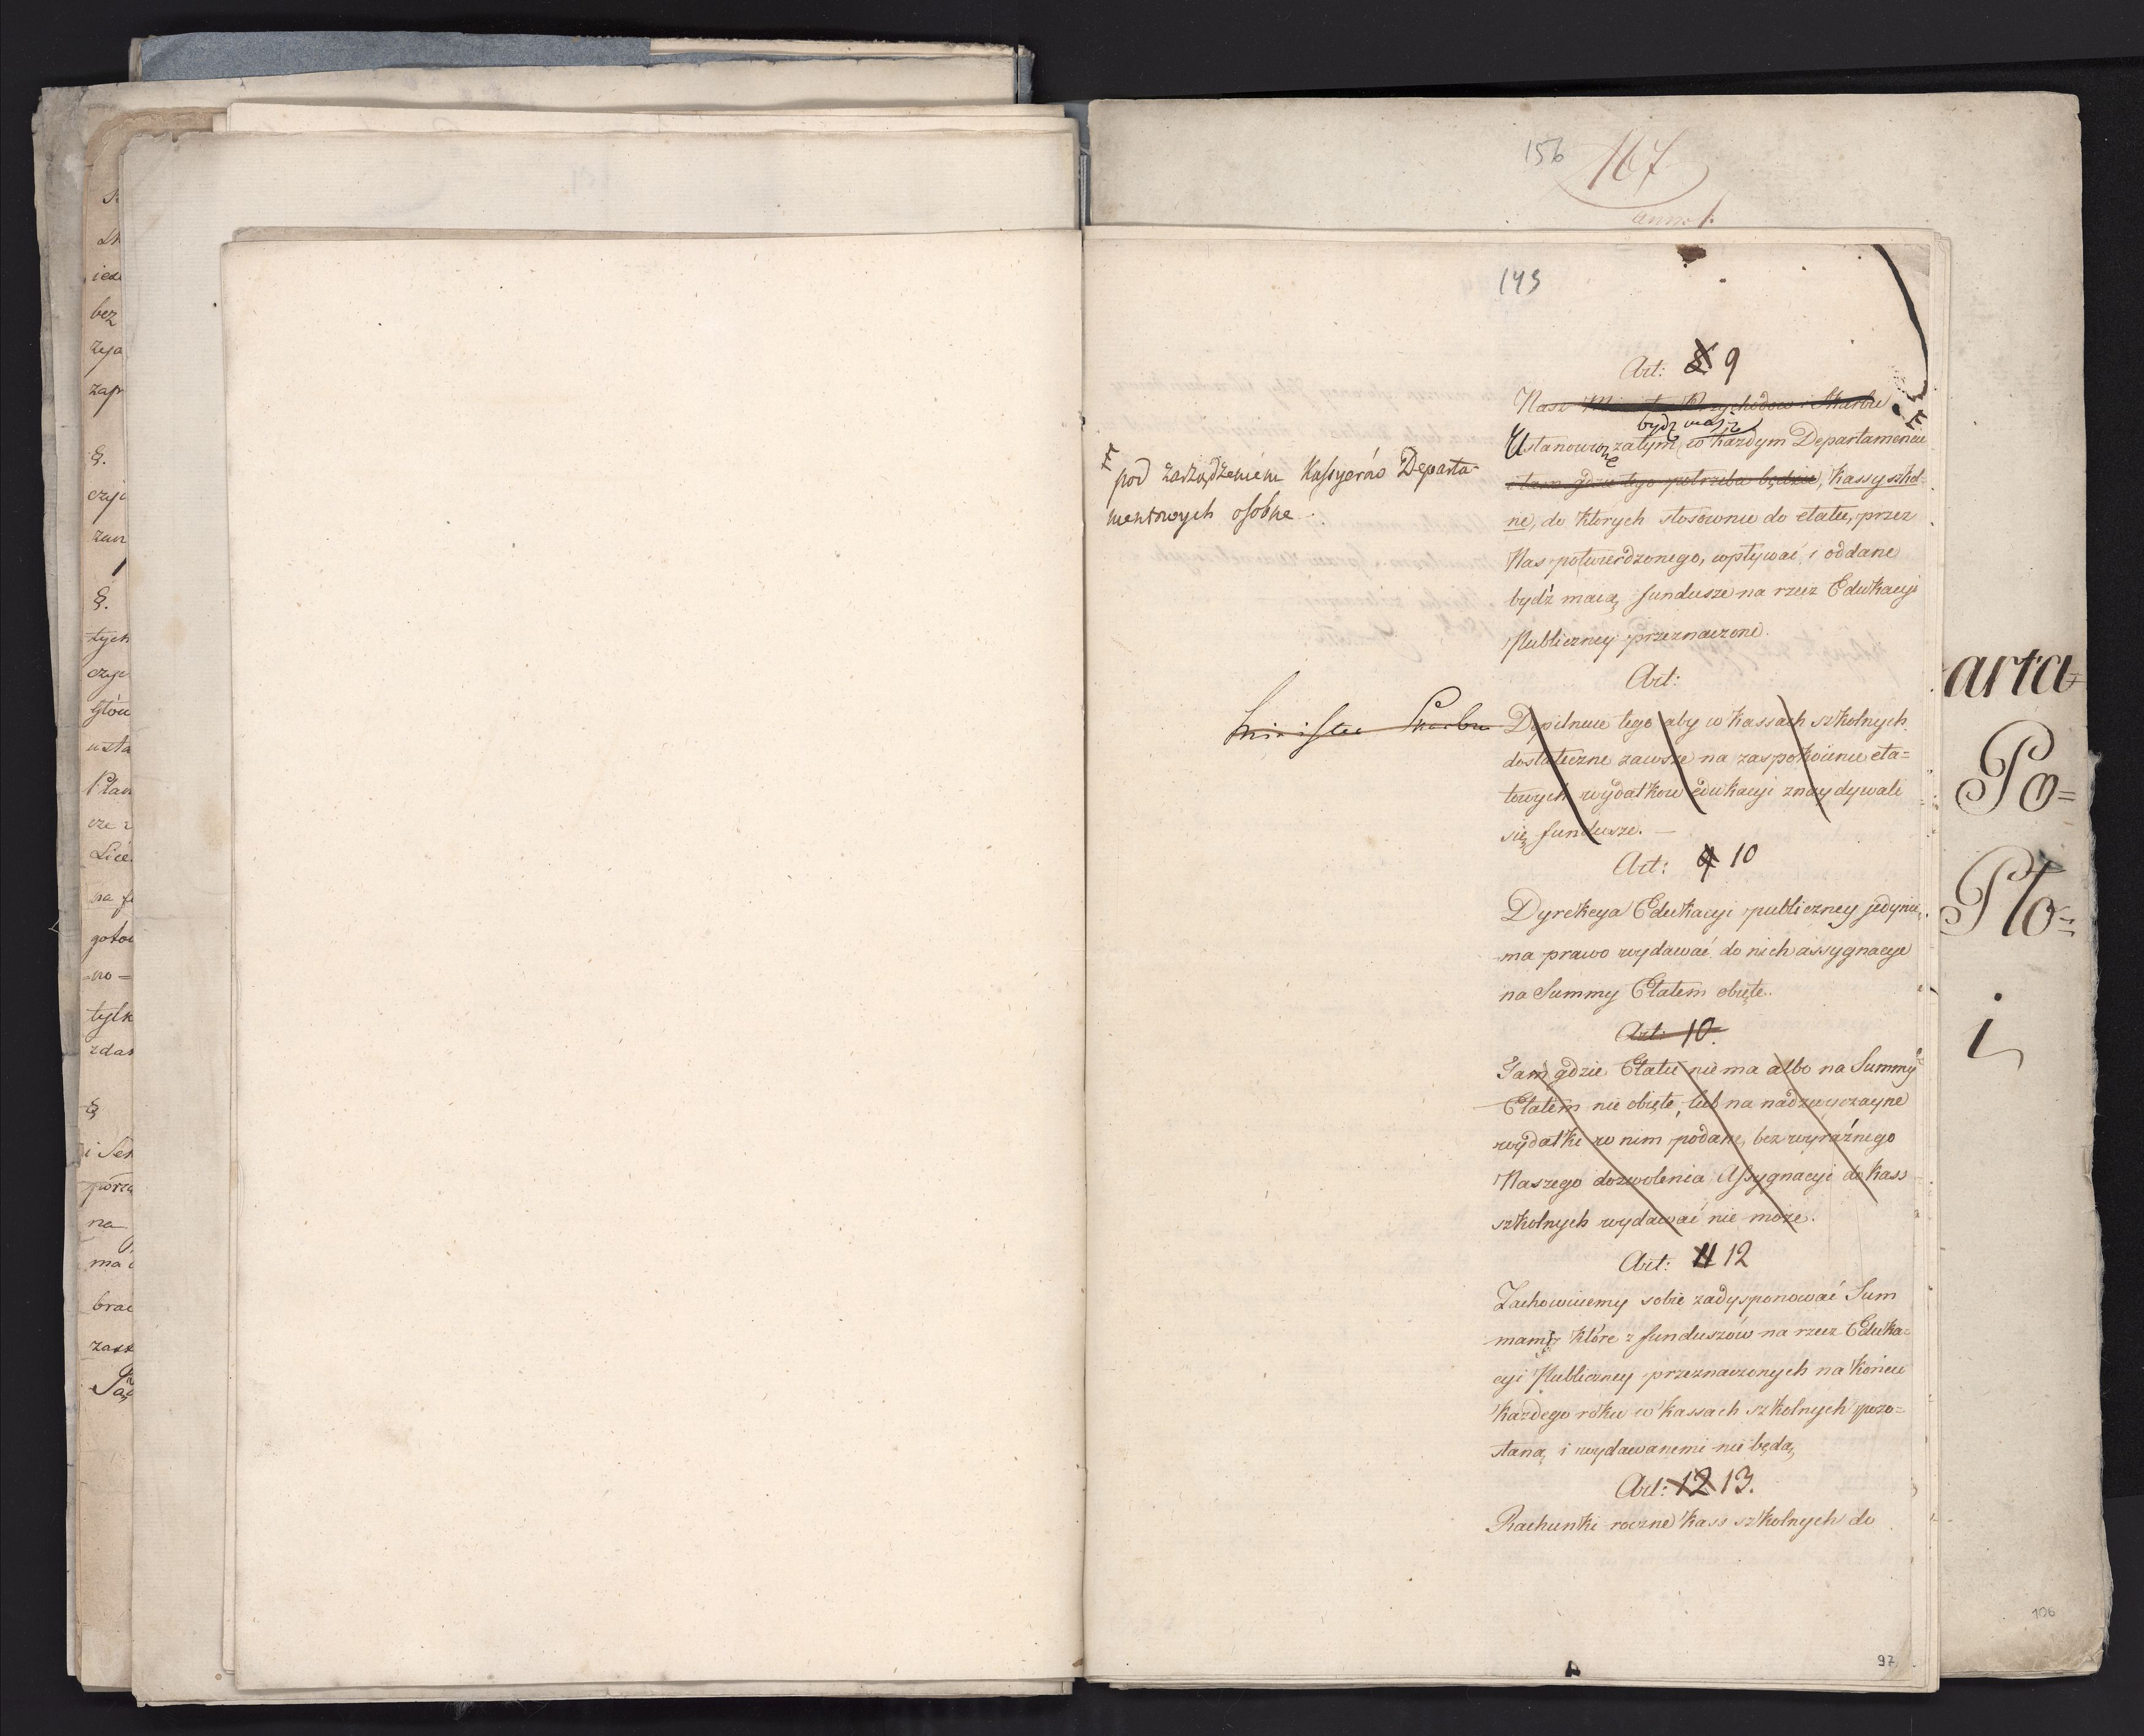 156 167
anne 1.
143
Art: 8 9
Nasz Minister Przychodow i Skarbu
bydź maią
Ustanowione zatym w każdym Departamencie
i tam gdzie tego potrzeba będzie, Kassy szkol-
ne, do których stosownie do etatu, przez
Nas potwierdzonego, wpływać i oddane
bydź maią fundusze na rzecz Edukacyi
Publiczney przeznaczone.
F pod zarządzeniem Kassyerów Departa-
mentowych osobne
Art:
Minister Skarbu Dopilnuie tego aby w Kassach szkolnych
dostateczne zawsze na zaspokoienie eta=
towych wydatkow edukacyi znaydywali
się fundusze. —
Art: 9 10
Dyrekcya Edukacyi publiczney jedynie
ma prawo wydawać do nich assygnacye
na Summy Etatem obięte.
Art: 10.
Tam gdzie Etatu nie ma albo na Summy
Etatem nie obięte, lub na nadzwyczayne
wydatki w nim podane, bez wyraźnego
Naszego dozwolenia Assygnacyi do Kass
szkolnych wydawać nie może.
Art: 11 12
Zachowuiemy sobie zadysponować Sum
mami które z funduszów na rzecz Eduka=
cyi Publiczney przeznaczonych na końcu
każdego roku w kassach szkolnych pozo=
staną i wydawanemi nie będą,
Art: 12 13.
Rachunki roczne Kass szkolnych do
97
arta=
Po=
Pło=
i
106